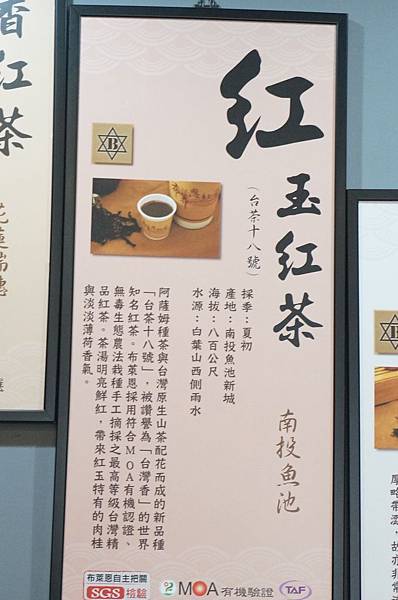 紅玉紅茶
(台茶十八號)
南投魚池
採季：夏初
產地：南投魚池新城
海拔：八百公尺
水源：白葉山西側雨水
阿薩姆種茶與台灣原生山茶配花而成的新品種
「台茶十八號」，被讚譽為「台灣香」的世界
知名紅茶。布萊恩採用符合MOA有機認證、
無毒生態農法栽種手工摘採之最高等級台灣精
品紅茶。茶湯明亮鮮紅，帶來紅玉特有的肉桂
與淡淡薄荷香氣。
B
布萊恩自主把關
SGS檢驗
MOA有機驗證
TAF
香紅茶
花蓮瑞穗